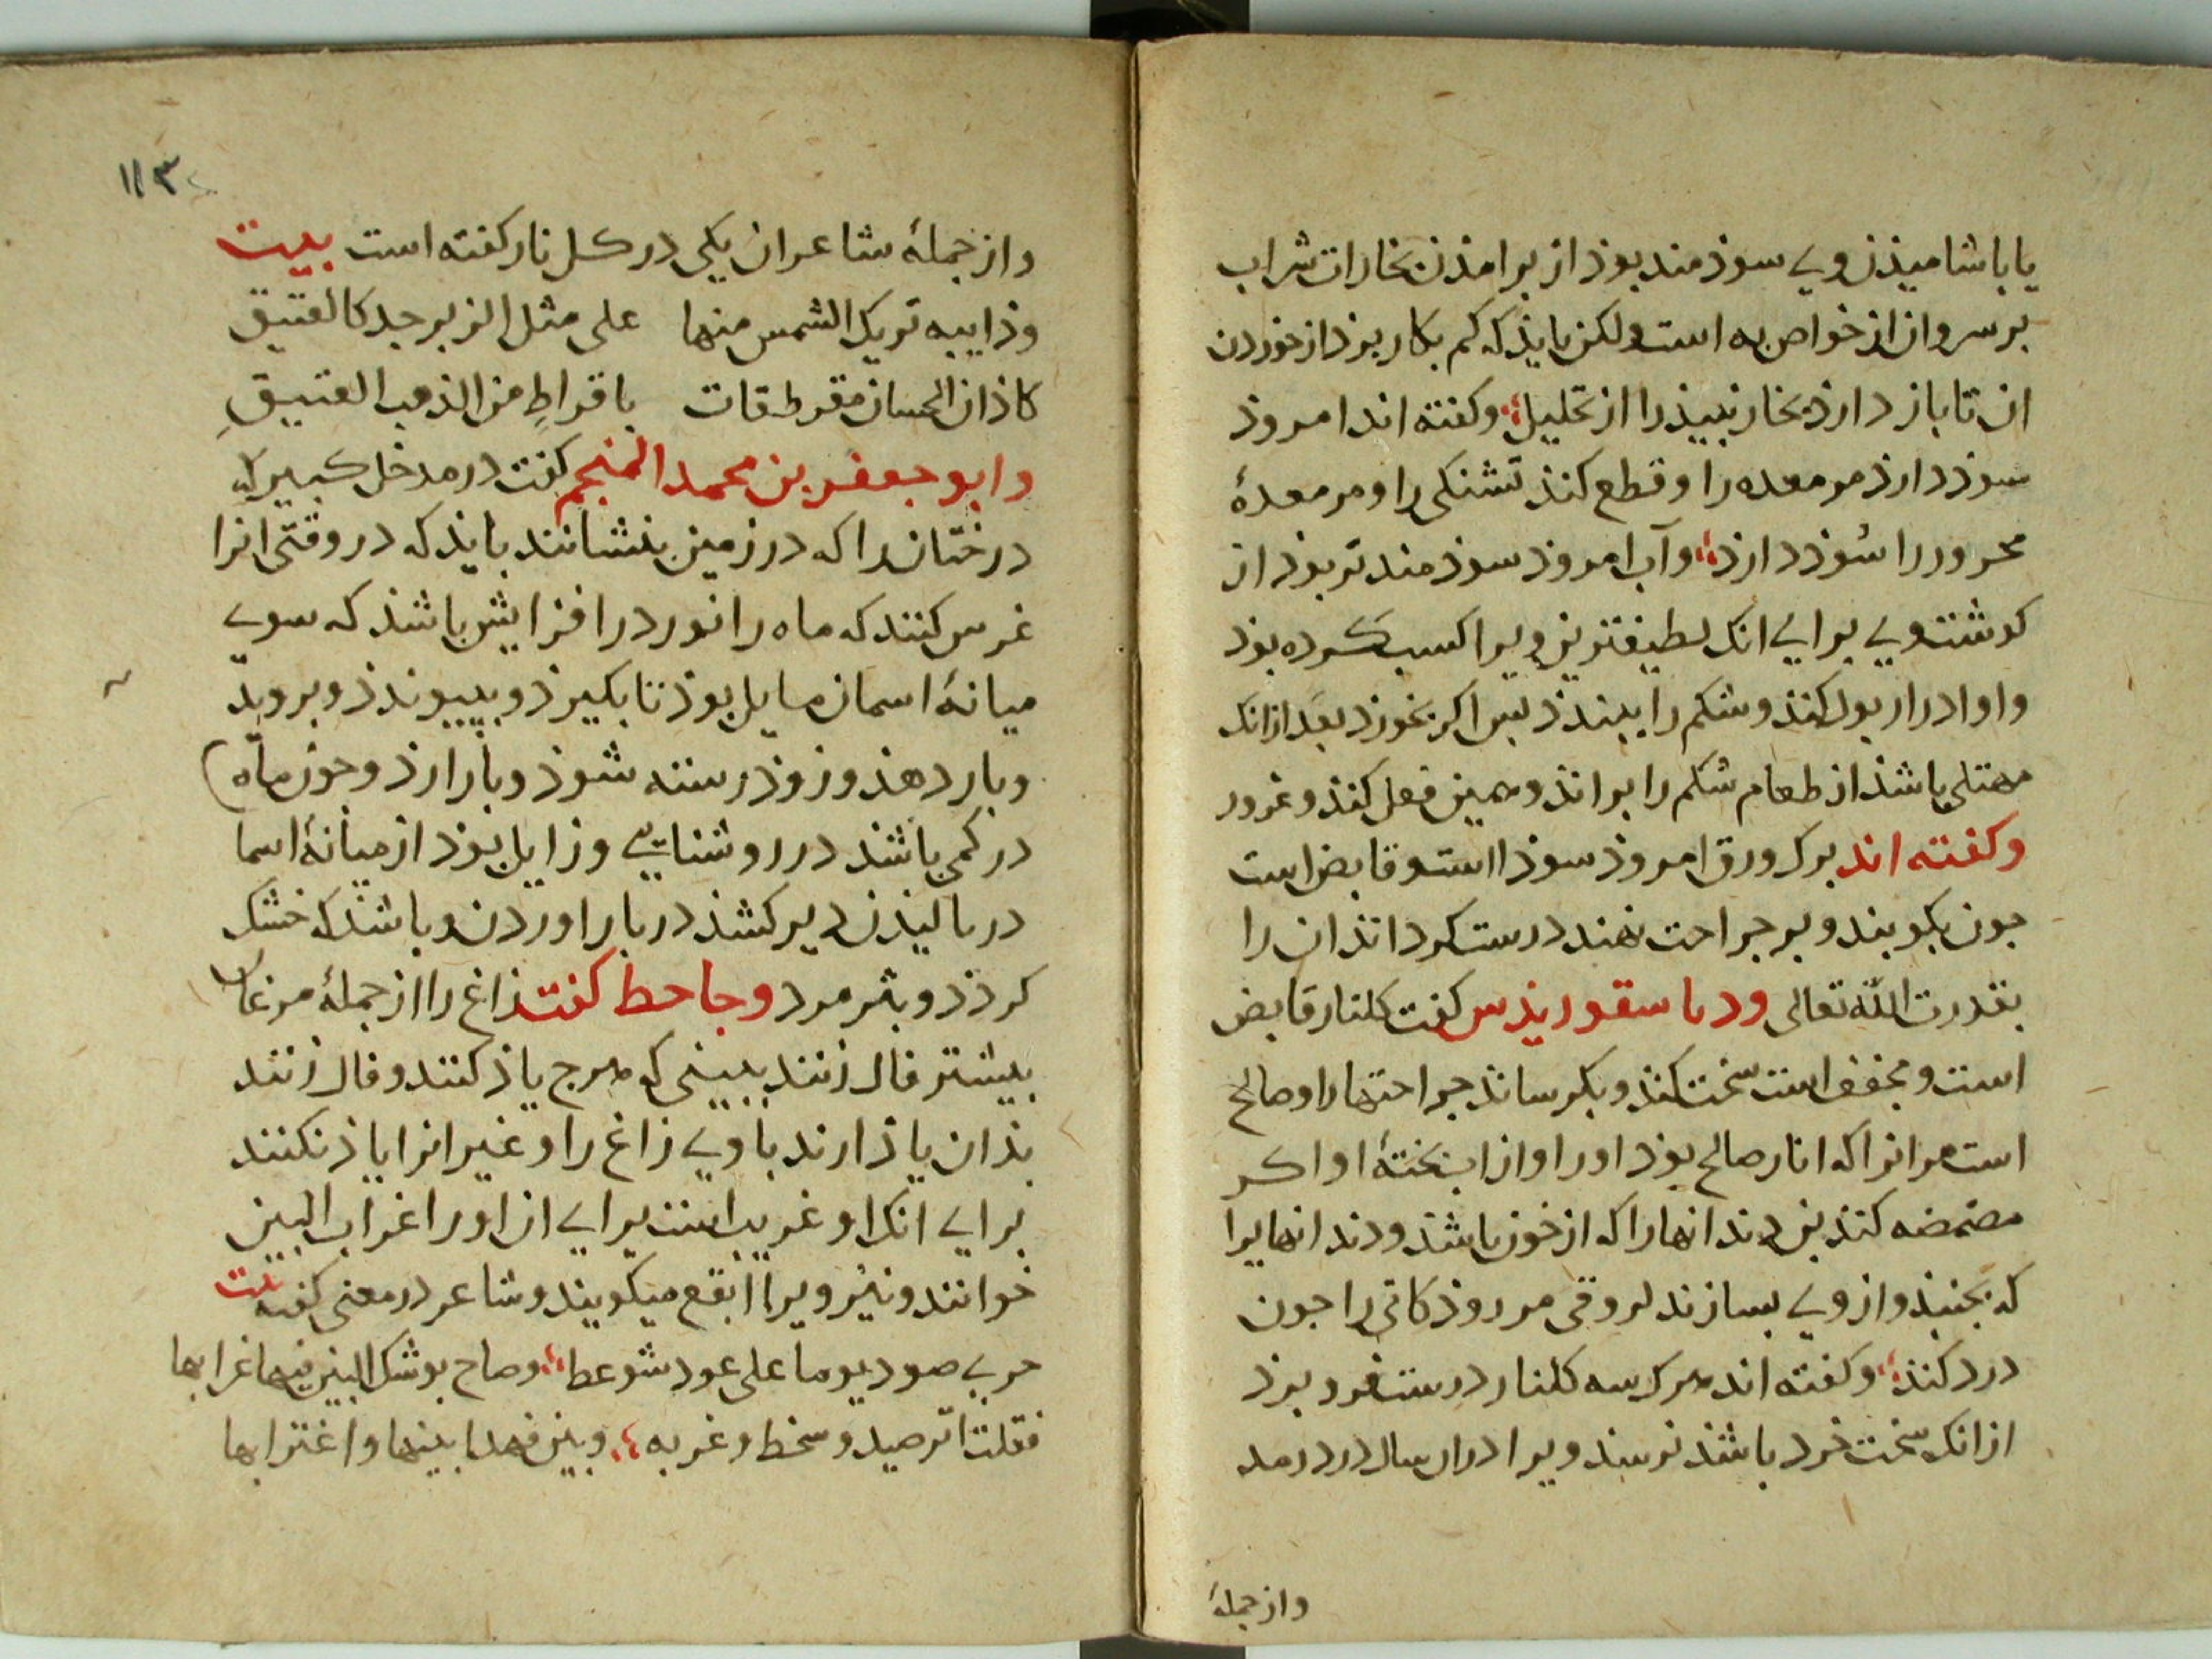 یا باشامیذن ویے سوذمند بوذ از برامذن بخارات شراب
بر سر وان از خواص به است ولکن بایذ که کم بکار برذ از خوردن
ان تا باز دارذ بخار نبیذ را از تحلیل وکفته اند امروذ
سوذ دارذ مر معده را وقطع کنذ تشنکی را ومر معدۀ
محرور را سوذ دارذ وآب امروذ سوذمند تر بوذ از
کوشت ویے برایے انک لطیفترین ویرا کسب کرده بوذ
واو ادرار بول کنذ وشکم را ببندذ بس اکر بخورذ بعد ازانک
ممتلی باشذ از طعام شکم را براند وهمین فعل کنذ وغرور
وکفته اند برک ورق امروذ سوذا است وقابض است
جون بکوبند وبر جراحت نهند درست کرداند ان را
بقدرت اللّه تعالی ودیاسقوریذس کفت کلنار قابض
است ومجفف است سخت کنذ وبکرساند جراحتها را وصالح
است مر انرا که انار صالح بوذ اورا واز اب بختۀ او اکر
مضمضه کنند بن دندانها را که از خون باشد ودندانهایرا
که بجنبذ وازویے بسازند لروقی مر روذکانی را جون
درد کنذ وکفته اند هرک سه کلنار درست فرو برذ
ازانک سخت خرد باشذ نرسند ویرا دران سال درد رمد
واز جملۀ
۱۱۳
واز جملۀ شاعران یکی در کل نار کفته است بیت
وذاییبه تریک الشمس منها علی مثل الزبرجد کالعقیق
کاذان الحسان مقرطقات باقراطٍ من الذهب العتیقِ
وابو جعفر بن محمد المنجم کفت در مدخل کبیر که
درختان را که در زمین بنشانند بایذ که در وقتی انرا
غرس کنند که ماه را نور در افزایش باشذ که سویے
میانۀ اسمان مایل بوذ تا بکیرذ وبپیوندذ وبرویذ
وبار دهذ وزوذ رسته شوذ وبار ارذ وجون ماه
در کمی باشذ در روشنایے وزایل بوذ از میانۀ اسما
در بالیذن دیر کشذ در بار اوردن وباشذ که خشک
کرذذ وبثرمرد وجاحط کفت زاغ را از جملۀ مرغان
بیشتر فال زنند ببینی که هرج یاذ کنند وفال زنند
بذان یاذ ارند با ویے زاغ را وغیر انرا یاذ نکنند
برایے انک او غریب است برایے ان اورا غراب البین
خوانند ونیز ویرا ابقع میکویند وشاعر در معنی کفته بیت
یوما علی عود شوعط وصاح بوشک البین فیها غرابها
فقلت وسخط وغربه وبین فهذا بینها واغترابها